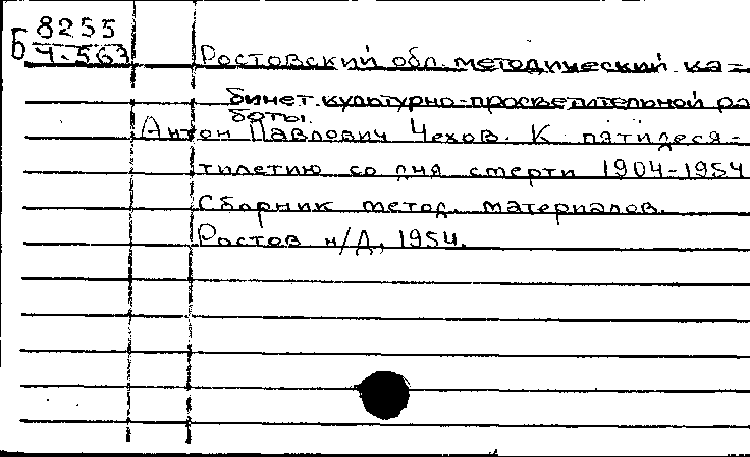 Б 8255
Ч-563
Ростовский обл. методический ка-
бинет культурно-просветительной ра
боты.
Антон Павлович Чехов. К пятидеся-
тилетию со дня смерти 1904-1954
Сборник метод. материалов.
Ростов н/Д, 1954.